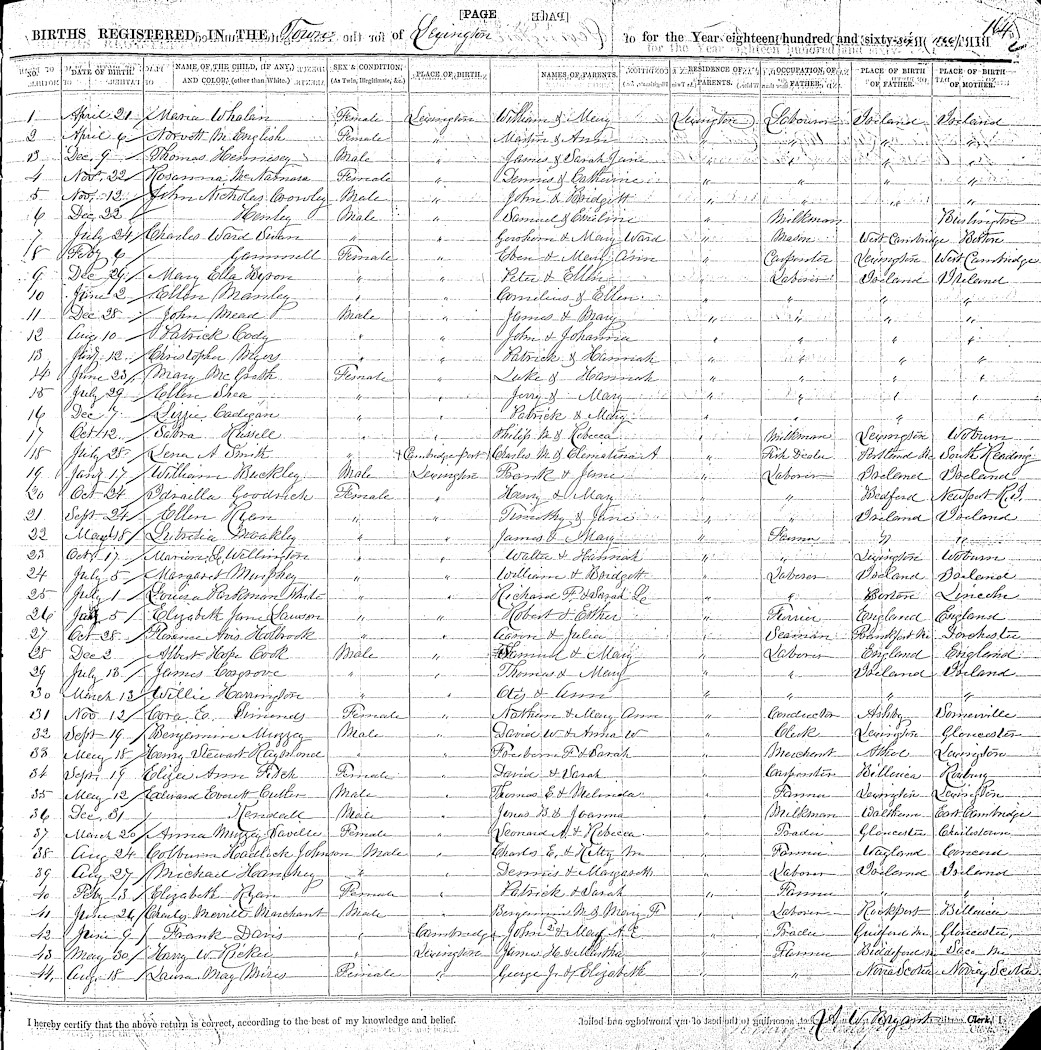 [PAGE
BIRTHS REGISTERED IN THE Town of Lexington for the Year eighteen hundred and sixty-
No. DATE OF BIRTH. NAME OF THE CHILD, (IF ANY,) AND COLOR; (other than White.) SEX & CONDITION, (As Twin, Illegitimate, &c.) PLACE OF BIRTH. NAMES OF PARENTS. RESIDENCE OF PARENTS. OCCUPATION OF FATHER. PLACE OF BIRTH OF FATHER. PLACE OF BIRTH OF MOTHER.
1 April 21 Maria Whalan Female Lexington William & Mary Lexington Labourer Ireland Ireland
2 April 6 Norvett McEnglish Female " Martin & Ann " " " "
3 Dec. 9 Thomas Hennisey Male " James & Sarah Jane " " " "
4 Nov. 22 Rosanna McNamara Female " Dennis & Catherine " " " "
5 Nov. 12 John Nicholas Crowley Male " John & Bridgett " " " "
6 Dec 22 Henley Male " Samuel & Emeline " Milkman Burlington
7 July 24 Charles Ward Swan " " Gershom & Mary Ward " Mason West Cambridge Boston
8 Feby 6 Gammell Female " Eben & Mary Ann " Carpenter Lexington West Cambridge
9 Dec 29 Mary Ella Byron " " Peter & Ellen " Laborer Ireland Ireland
10 June 2 Ellen Manley " " Cornelius & Ellen " " " "
11 Dec 28 John Mead Male " James & Mary " " " "
12 Aug 10 Patrick Cody " " John & Johanna " " " "
13 Jany 12 Christopher Myers " " Patrick & Hannah " " " "
14 June 23 Mary McGrath Female " Luke & Hannah " " " "
15 July 29 Ellen Shea " " Jerry & Mary " " " "
16 Dec 7 Lizzie Cadigan " " Patrick & Mary " " " "
17 Oct 12 Sabra Russell " " Philip M & Rebecca " Milkman Lexington Woburn
18 July 28 Lena A Smith " Cambridgeport Charles M & Clementina A " Fish Dealer Portland Me South Reading
19 Jany 17 William Buckley Male Lexington Frank & Jane " Laborer Ireland Ireland
20 Oct 24 Idraella Goodrich Female " Henry & Mary " " Bedford Newport R.I.
21 Sept 24 Ellen Ryan " " Timothy & Jane " " Ireland Ireland
22 May 18 Lucretia Moakley " " James & Mary " Farmer " "
23 Oct 17 Marion L Wellington " " Walter & Hannah " " Lexington Woburn
24 July 5 Margaret Murphey " " William & Bridgett " Laborer Ireland Ireland
25 July 1 Louisa Parkman White " " Richard F. & Sarah L " " Boston Lincoln
26 July 5 Elizabeth Jane Lawson " " Robert & Esther " Furrier England England
27 Oct 28 Florence Avis Holbrook " " Aaron & Julia " Seaman Frankfort Me Dorchester
28 Dec 2 Albert Hope Cook Male " Samuel & Mary " Laborer England England
29 July 18 James Cosgrove " " Thomas & Mary " " Ireland Ireland
30 March 13 Willie Harrington " " Otis & Ann " " " "
31 Nov 12 Cora E. Simonds Female " Nathan & Mary Ann " Conductor Ashby Somerville
32 Sept 19 Benjamin Muzzey Male " David W & Anna W " Clerk Lexington Gloucester
33 May 18 Henry Stewart Raymond " " Freeborn F & Sarah " Merchant Athol Lexington
34 Sept. 19 Eliza Ann Fitch Female " David & Sarah " Carpenter Billerica Roxbury
35 May 12 Edward Everett Cutler Male " Thomas E & Melinda " Farmer Lexington Lexington
36 Dec. 31 Kendall Male " Jonas B & Joanna " Milkman Waltham East Cambridge
37 March 20 Anna Muzzey Saville Female " Leonard A & Rebecca " Trader Gloucester Charlestown
38 Aug 24 Colburn Hadlock Johnson Male " Charles E. & Kitty M " Farmer Wayland Concord
39 Aug 27 Michael Hanchey " " Dennis & Margarett " Laborer Ireland Ireland
40 Feby 13 Elizabeth Ryan Female " Patrick & Sarah " Farmer " "
41 June 26 Charles Merritt Marchant Male " Benjamin M & Mary F " Laborer Rockport Billerica
42 June 9 Frank Davis " Cambridge John & Mary A E " Trader Guilford Me Gloucester
43 May 30 Harry W Ricker " Lexington James H & Martha " Farmer Biddeford Me Saco Me
44 Aug 18 Laura May Mires Female " George J. & Elizabeth " " Nova Scotia Novey Scotia
I hereby certify that the above return is correct, according to the best of my knowledge and belief.
A W Bryant Clerk